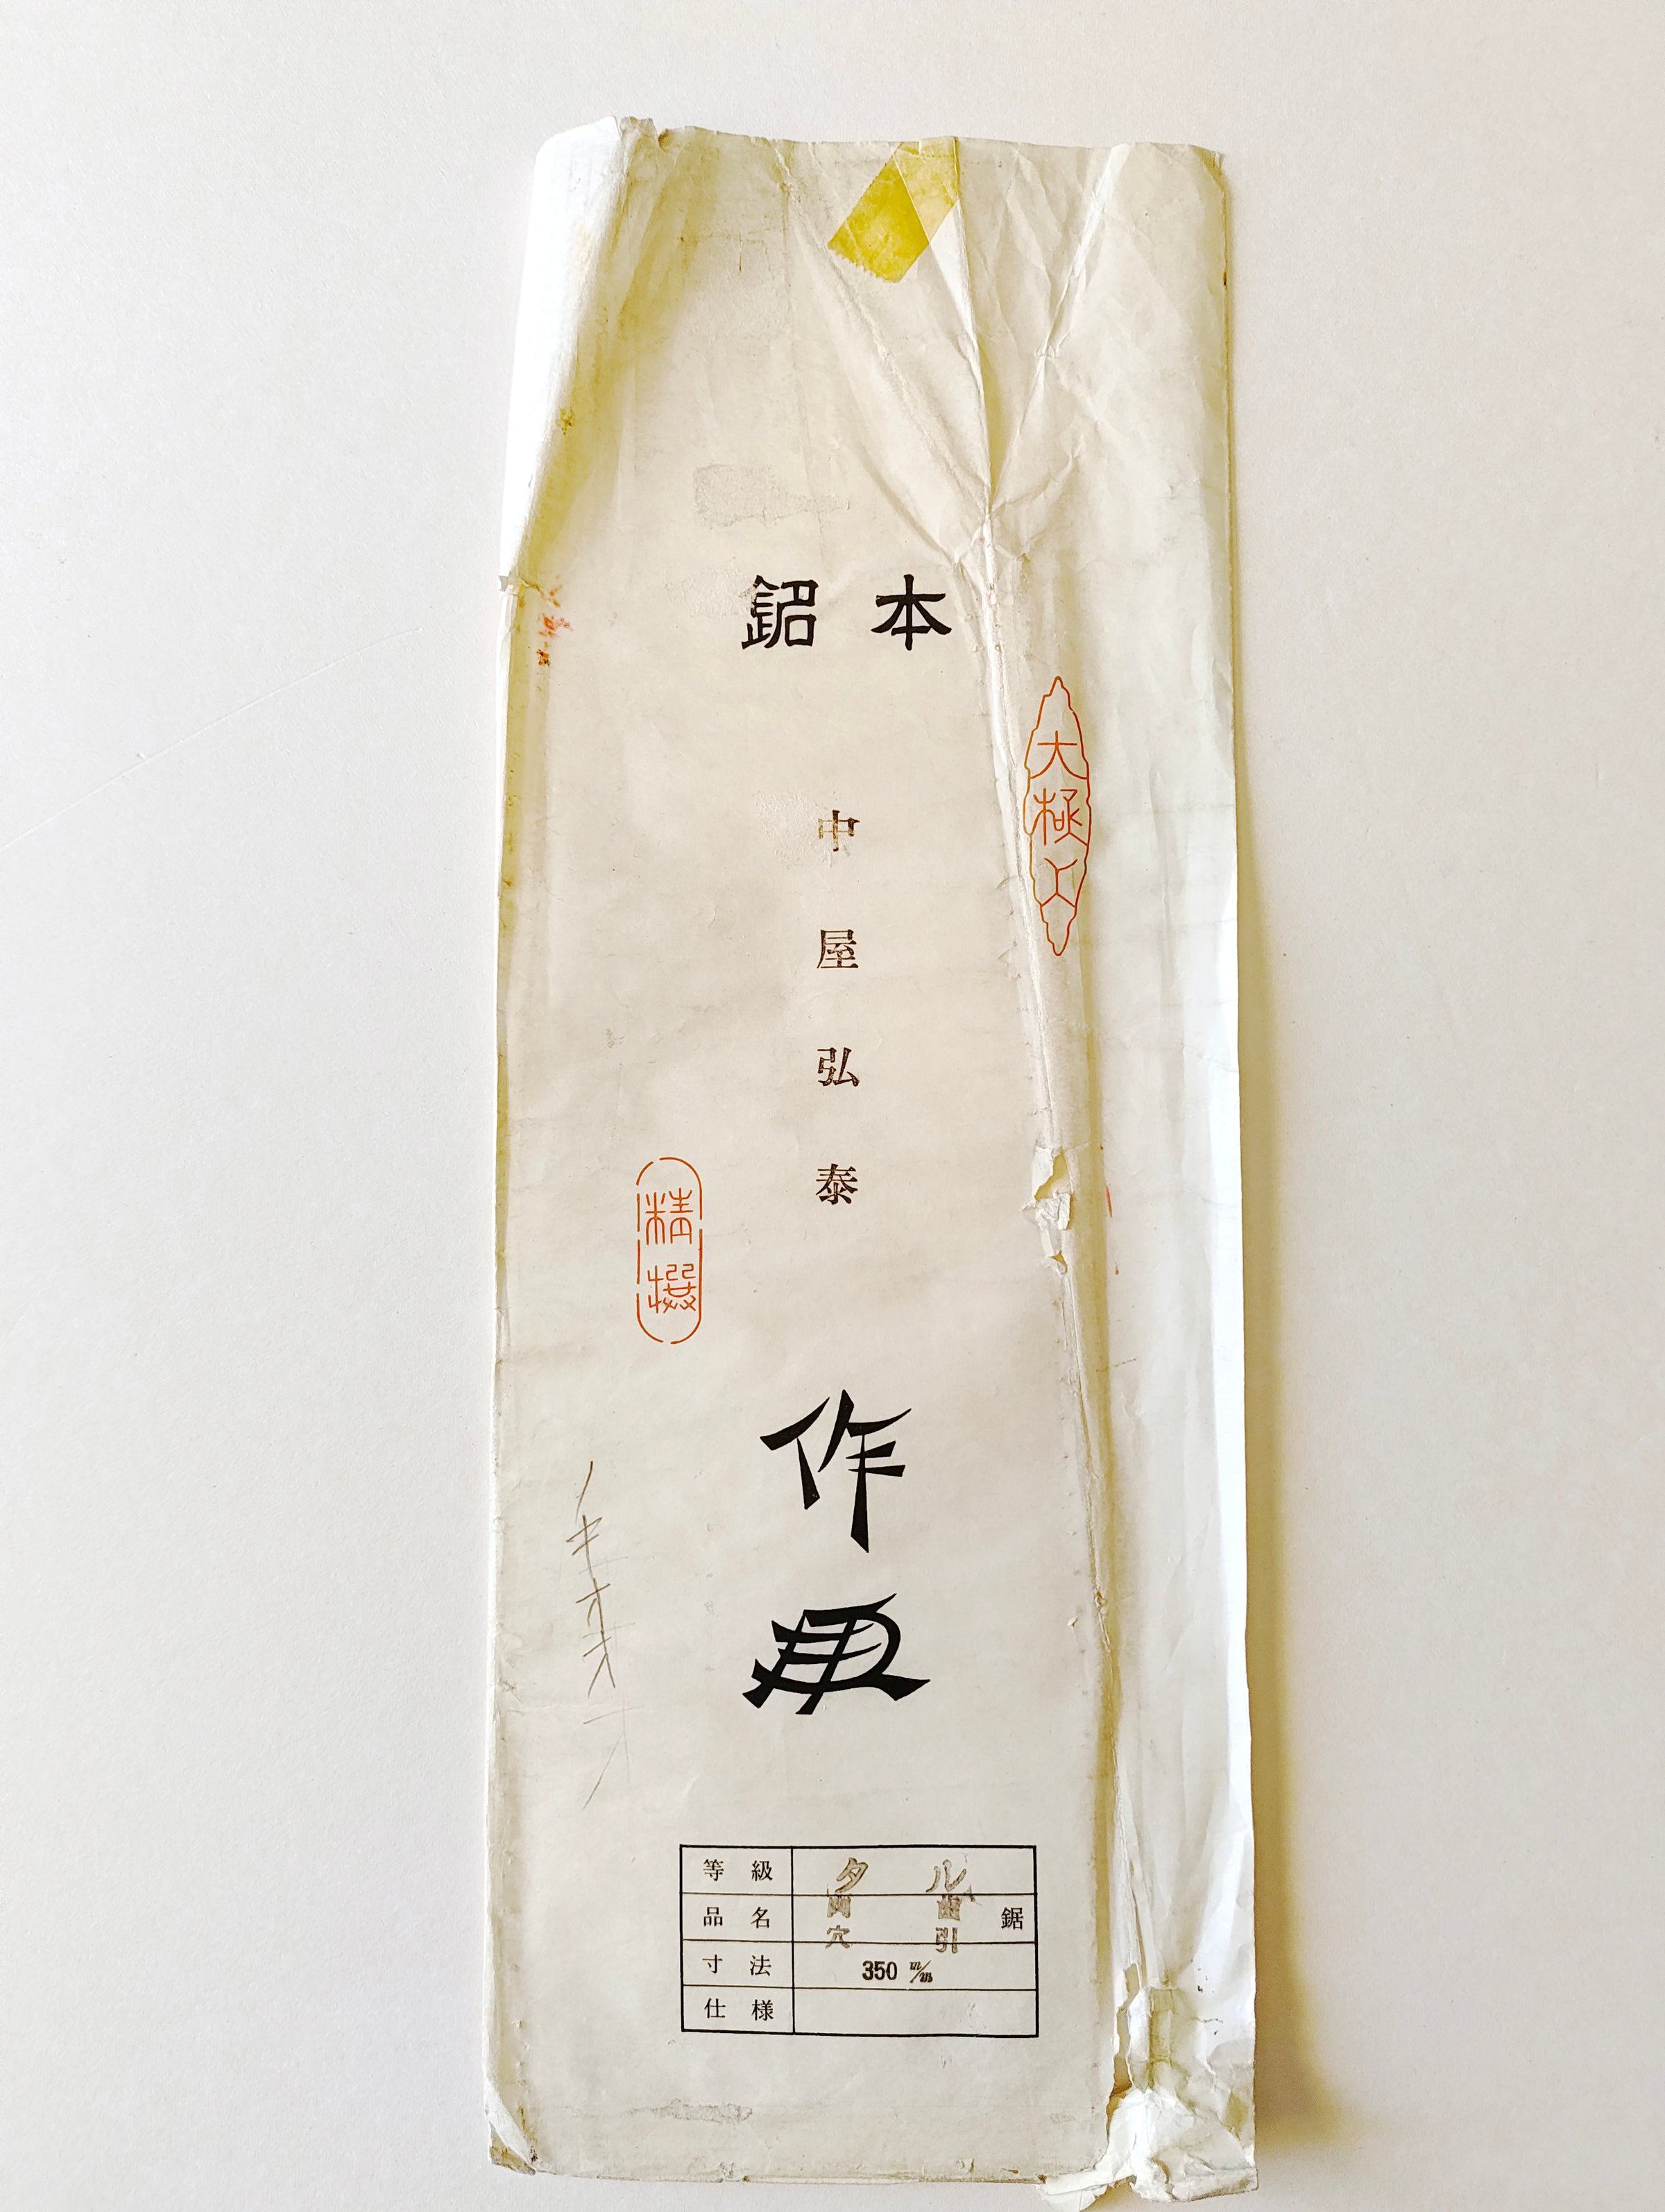 本鋁
大極上
中屋弘泰
精撰
作
等級 タル
品名 両歯 鋸
穴引
寸法 350 m/m
仕様